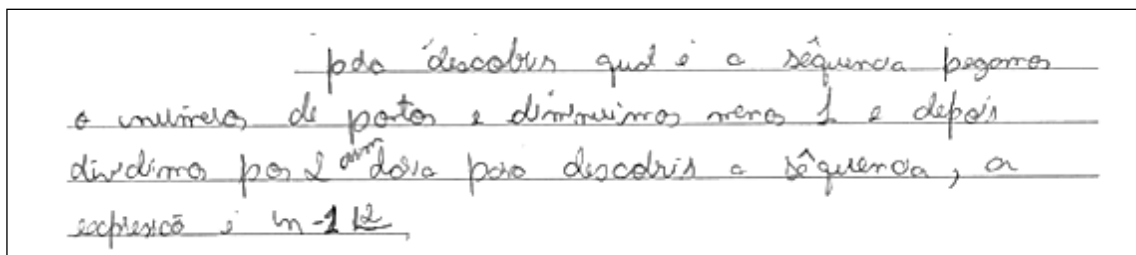 pda descobris qual é a sêquencia pegamos
o numeros de pontos e diminuimos menos 1 e depois
dividimo por 2 asim dária para descobris a sêquencia, a
expresicõ é n -1 2